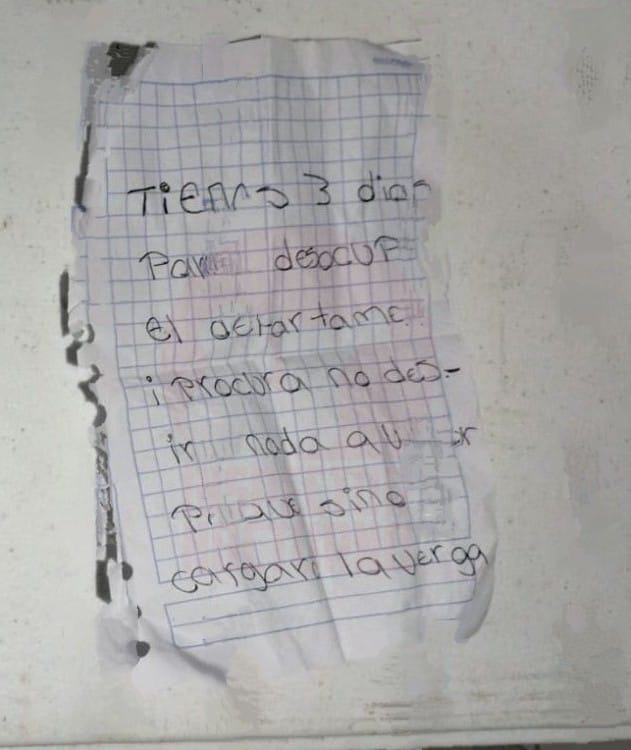 TiENS 3 dias
Para desocup
el departame
i procura no des-
ir nada
Pr que sino
cargara la verga